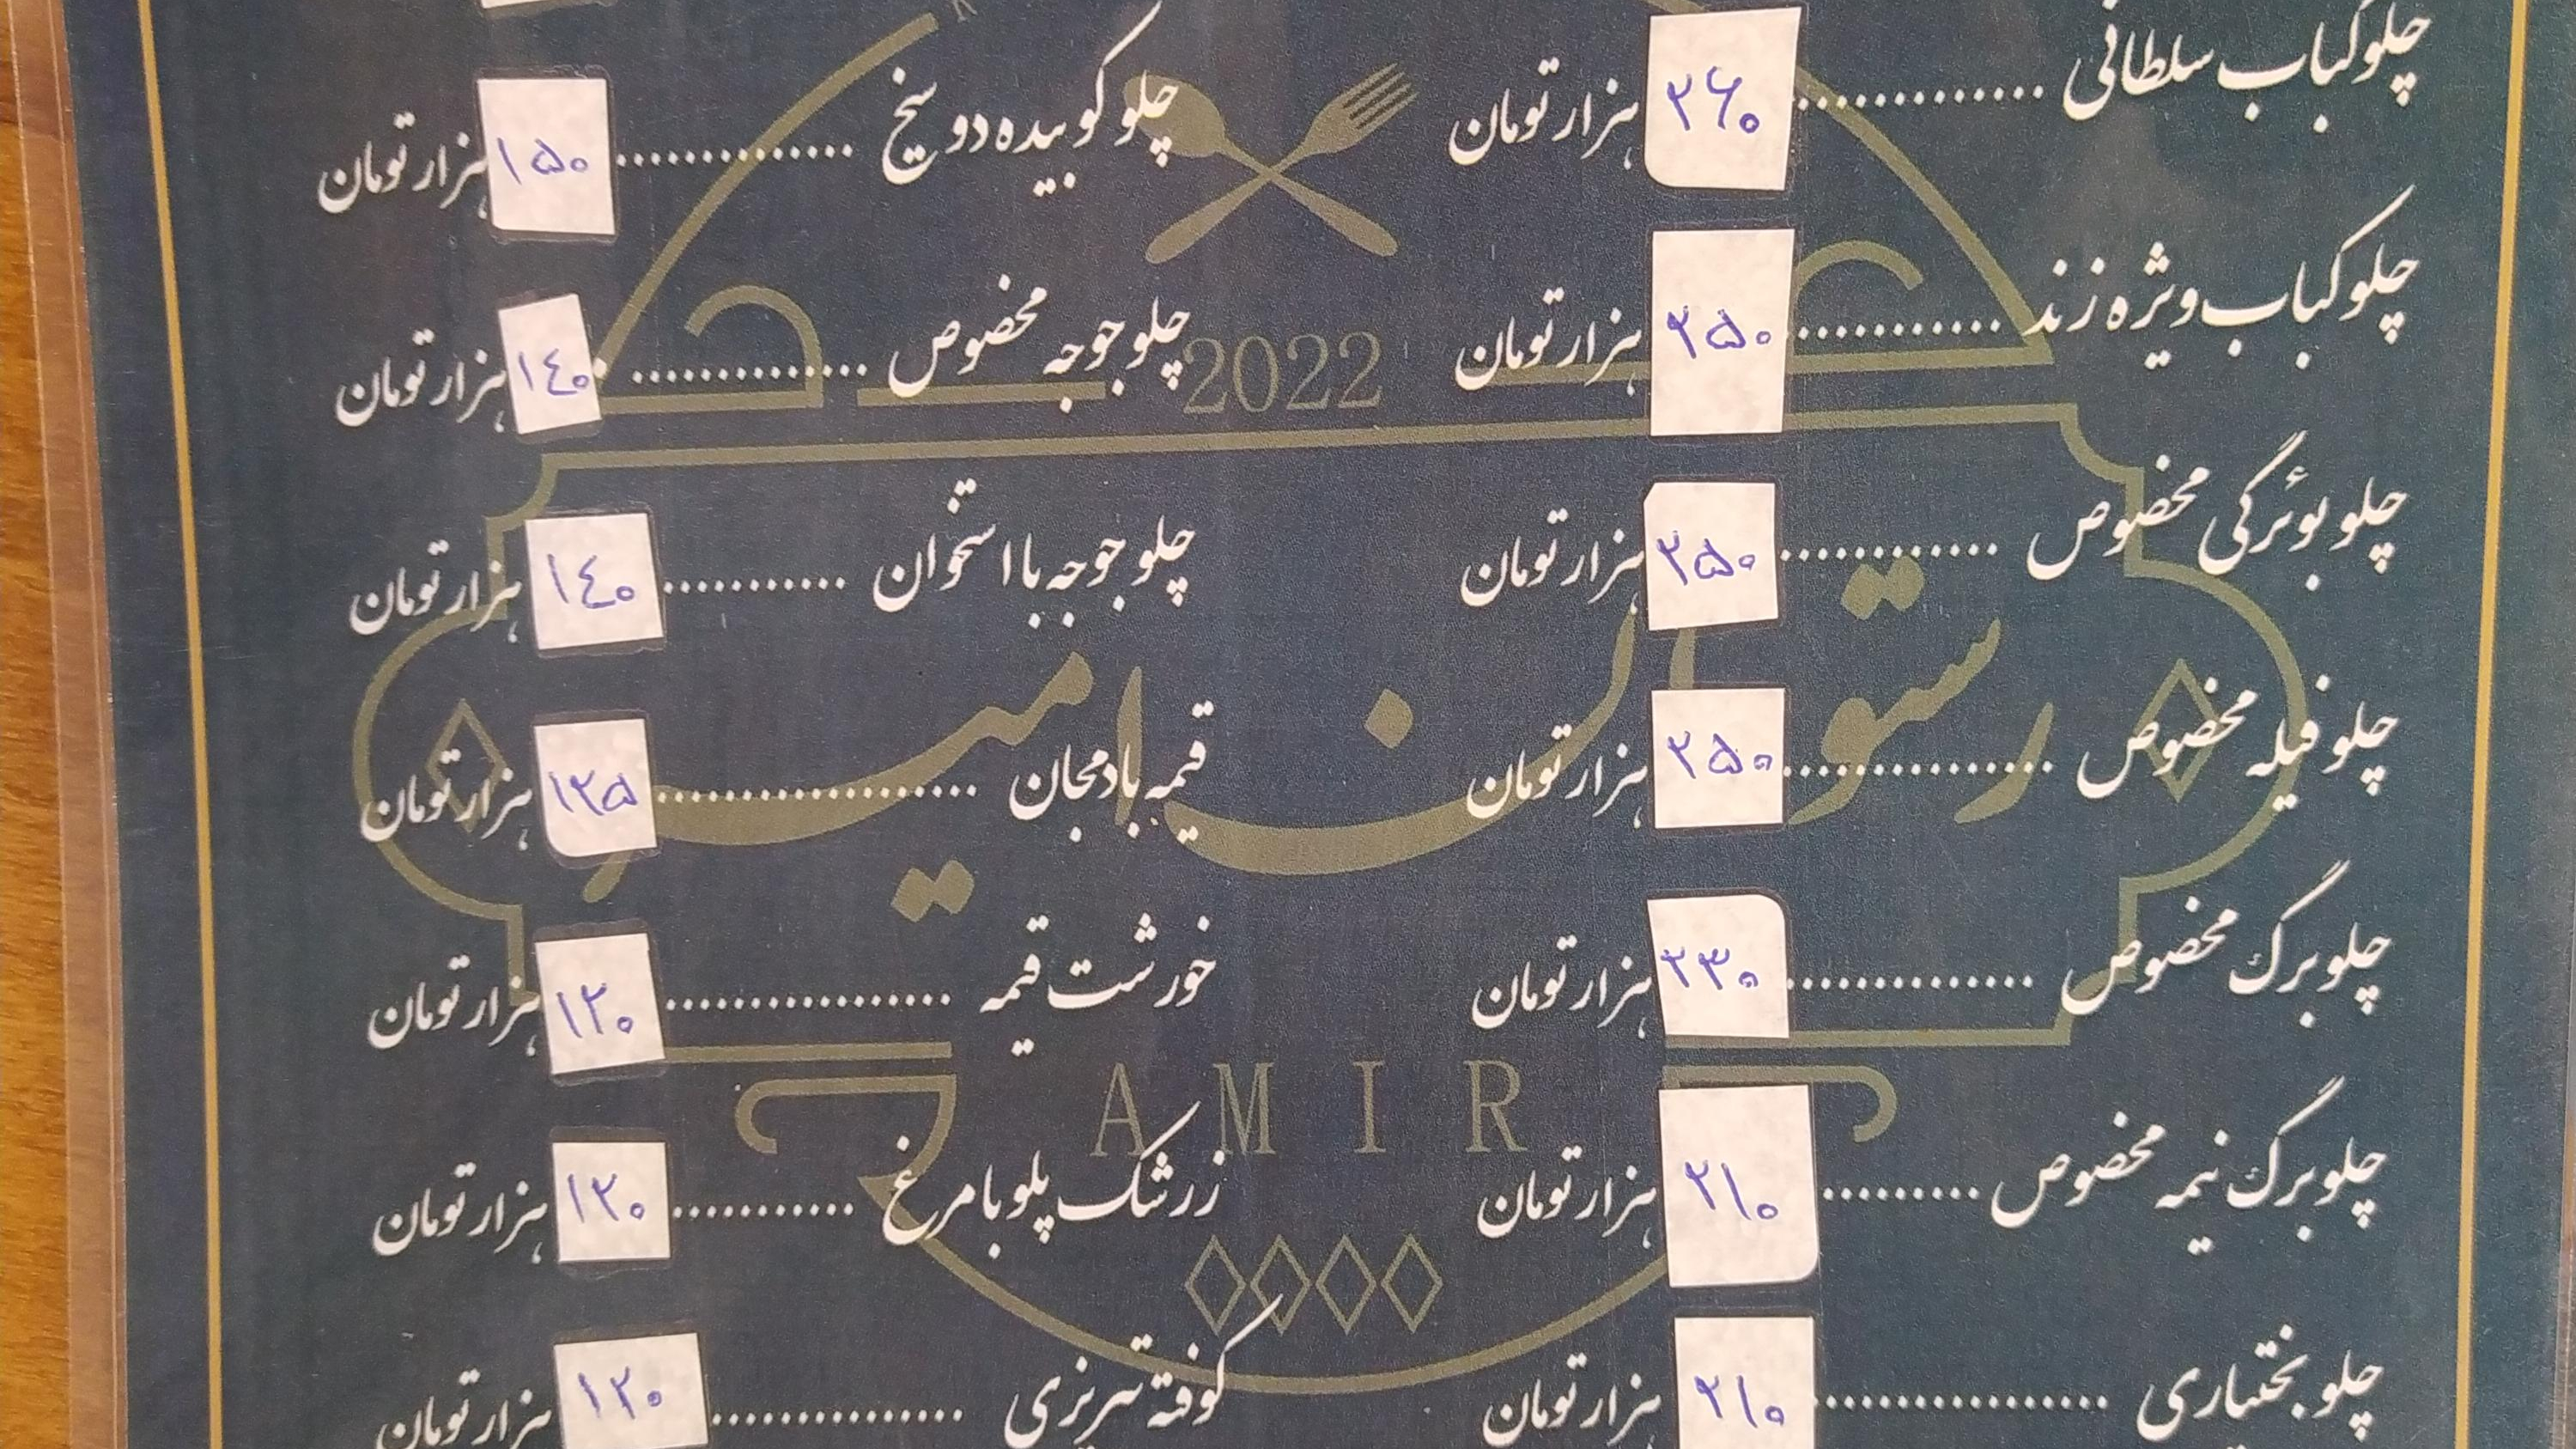 چلوکباب سلطانی ............. ۲۶۰ هزار تومان
چلوکباب ویژه زند ............. ۲۵۰ هزار تومان
چلو بوئرگی مخصوص ............. ۲۵۰ هزار تومان
چلو فیله مخصوص ................ ۲۵۰ هزار تومان
چلوبرگ مخصوص ............... ۲۳۰ هزار تومان
چلوبرگ نیمه مخصوص ......... ۲۱۰ هزار تومان
چلو بختیاری .................. ۲۱۰ هزار تومان
چلو کوبیده دو سیخ .............. ۱۵۰ هزار تومان
چلو جوجه مخصوص .............. ۱٤۰ هزار تومان
چلو جوجه با استخوان ........... ۱٤۰ هزار تومان
قیمه بادمجان .................... ۱۲۵ هزار تومان
خورشت قیمه .................. ۱۲۰ هزار تومان
زرشک پلو با مرغ ........... ۱۲۰ هزار تومان
کوفته تبریزی ................ ۱۲۰ هزار تومان
2022
رستوران امیر
AMIR